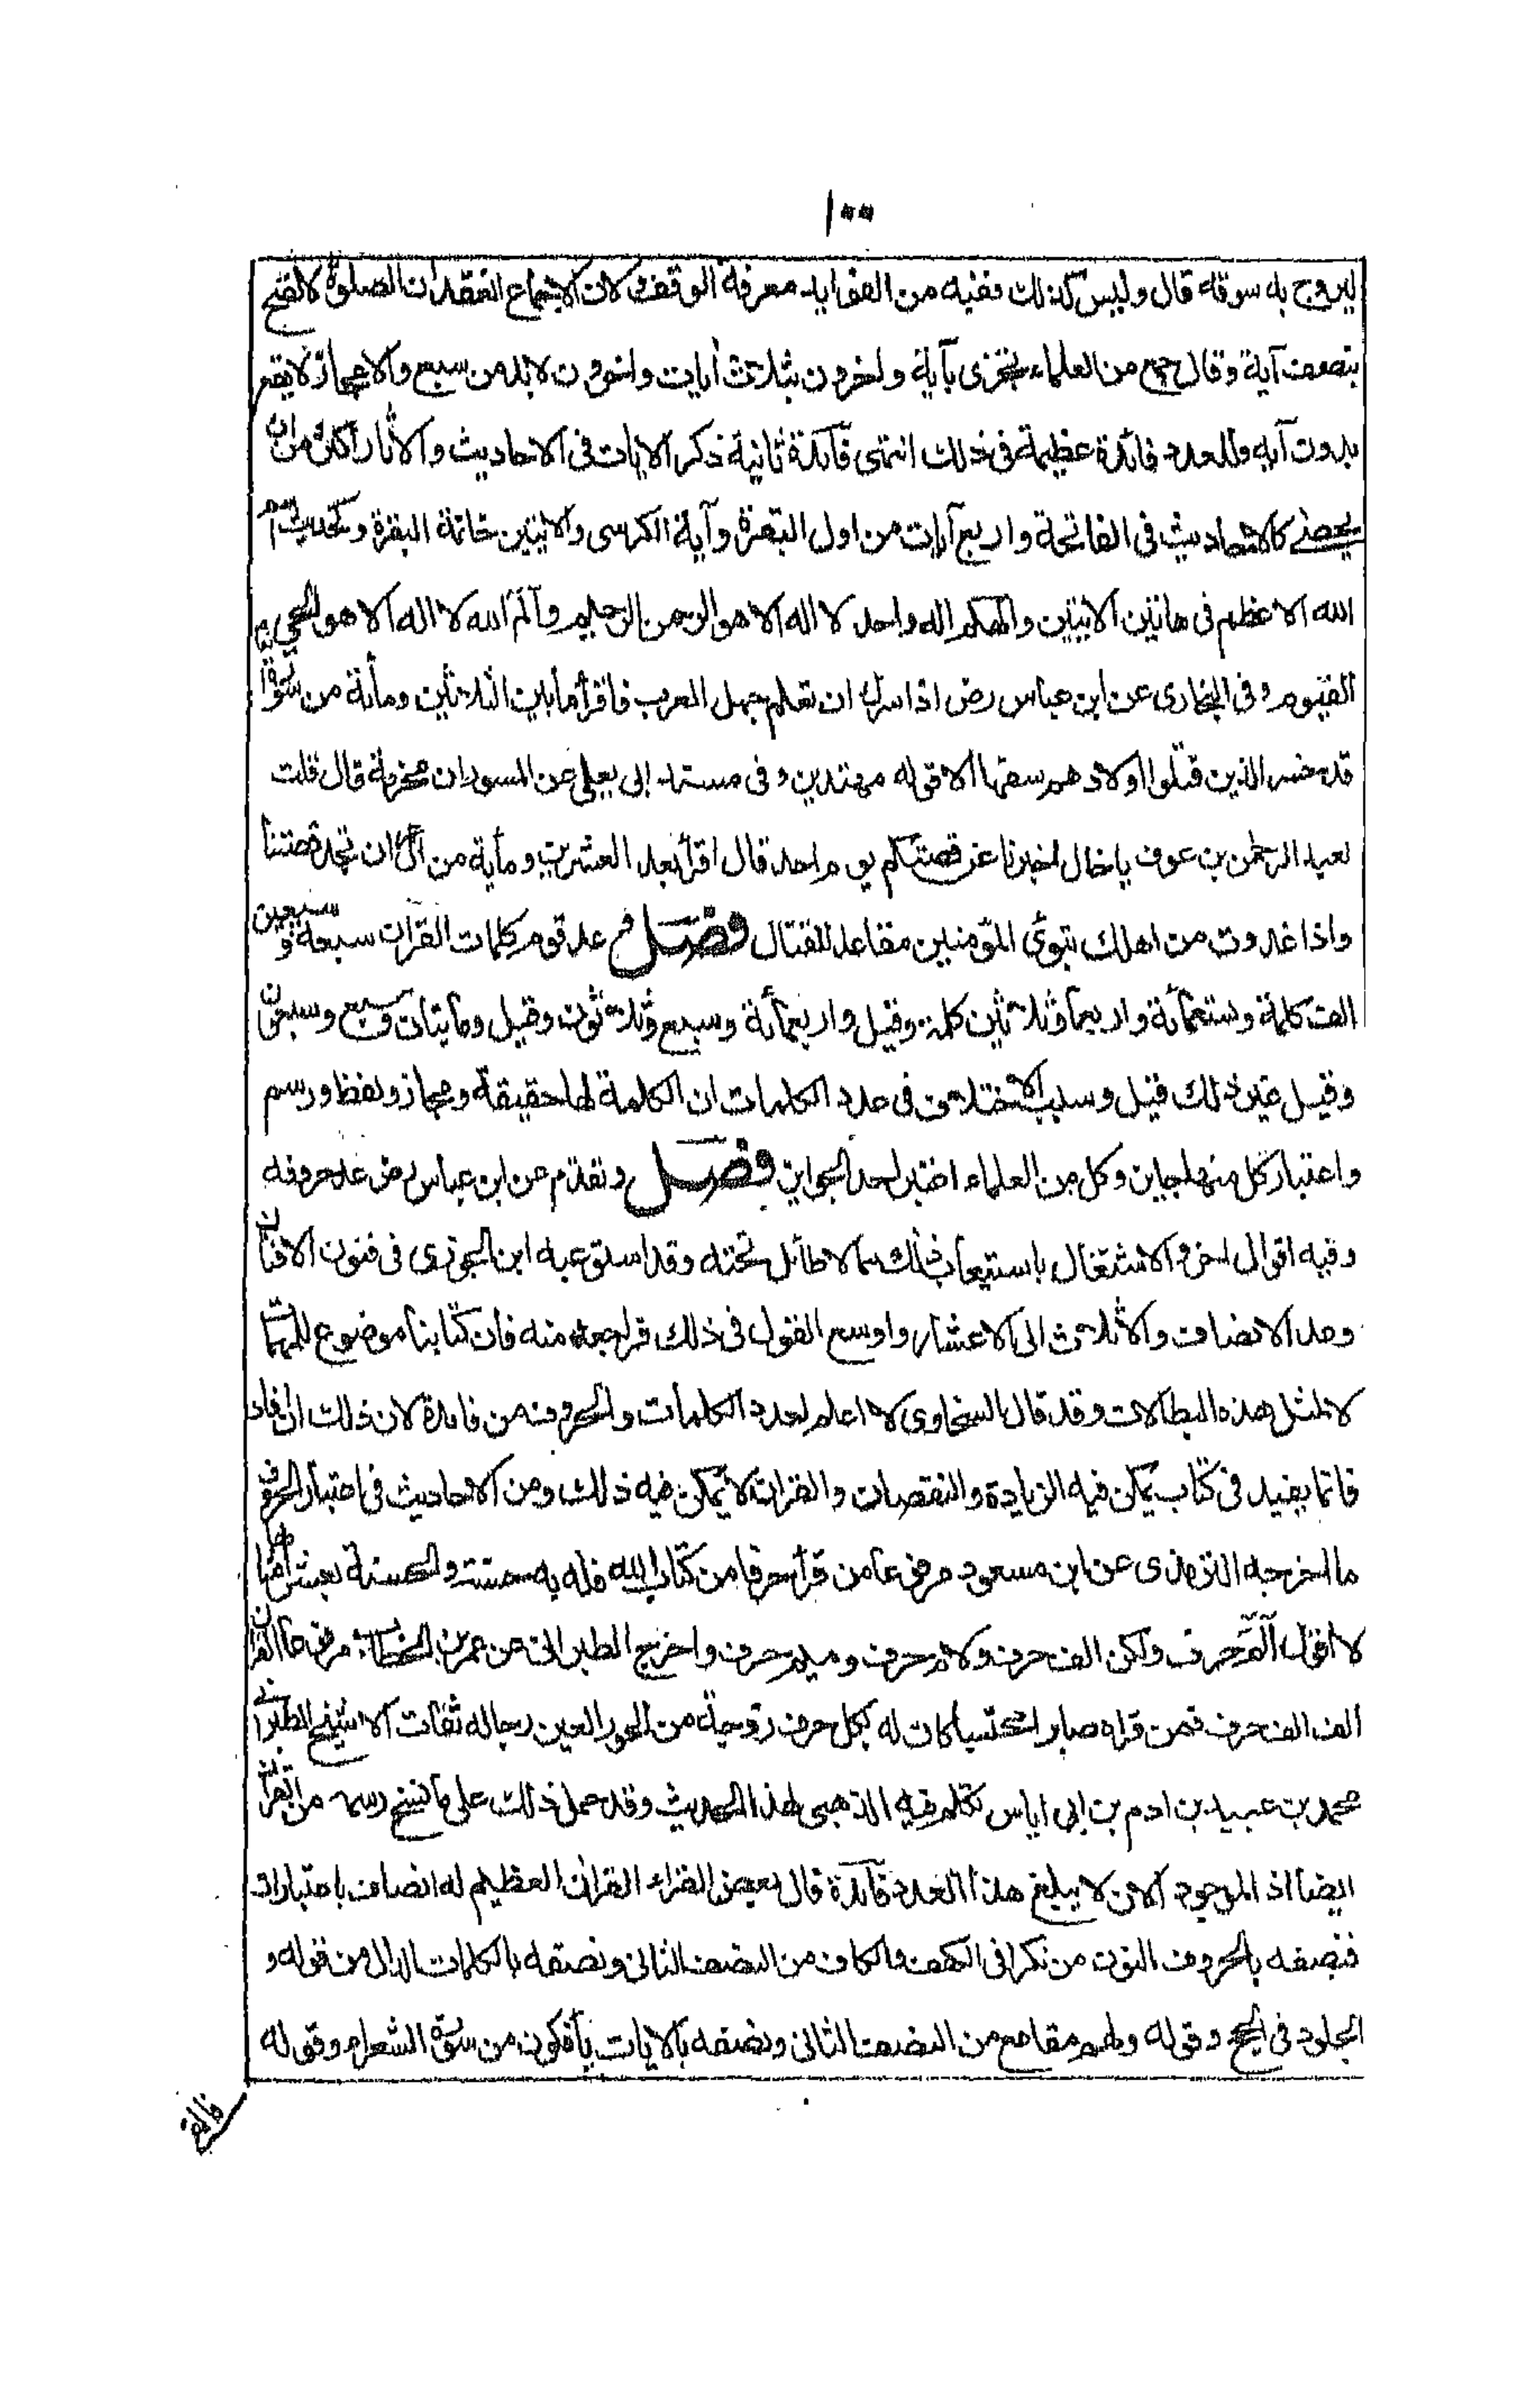 ١٠٠
ليروج به سوقه قال وليس كذلك ففيه من الفوايد معرفة الوقف ولان الاجماع انعقد ان الصلوة لا تصح
بنصف آية وقال جمع من العلماء تجزى بآية واخرون بثلاث أيات واخرون لا بد من سبع والاعجاز لا يقع
بدون آية وللعدد فائدة عظيمة فى ذلك انتهى فآئدة ثانية ذكر الايات فى الاحاديث والاثار اكثر من ان
يحصى كالاحاديث فى الفاتحة واربع آيات من اول البقرة وآية الكرسى والايتين خاتمة البقرة وكحديث اسم
الله الاعظم فى هاتين الايتين والهكم اله واحد لا اله الا هو الرحمن الرحيم وآلم الله لا اله الا هو الحي
القيوم وفى البخارى عن ابن عباس رض اذا سرك ان تعلم جهل العرب فاقرأ ما بين الثلاثين ومأية من سورة
قد خسر الذين قتلوا اولادهم سفها الا قوله مهتدين وفى مسند ابى يعلى عن المسور ان مخرمة قال قلت
لعبد الرحمن بن عوف يا خال اخبرنا عن قصتكم يوم احد قال اقرأ بعد العشرين ومأية من ال عمران تجد قصتنا
واذا غدوت من اهلك تبوئ المؤمنين مقاعد للقتال فصل عد قوم كلمات القرآن سبعة وسبعين
الف كلمة وستمأئة واربعا وثلاثين كلمة وقيل واربعمأئة وسبع وثلاثون وقيل ومأيتان وسبع وسبعون
وقيل غير ذلك قيل وسبب الاختلاف فى عدد الكلمات ان الكلمة لها حقيقة ومجاز ولفظ ورسم
واعتبار كل منها جايز وكل من العلماء اعتبر احد الجوايز فصل وتقدم عن ابن عباس رض عد حروفه
وفيه اقوال اخر والاشتغال باستيعاب ذلك مما لا طائل تحته وقد استوعبه ابن الجوزى فى فنون الافنان
وعد الانصاف والاثلاث الى الاعشار واوسع القول فى ذلك فراجعه منه فان كتابنا موضوع للمهمات
لا لمثل هذه البطالات وقد قال السخاوى لا اعلم لعدد الكلمات والحروف من فايدة لان ذلك ان افاد
فانما يفيد فى كتاب يمكن فيه الزيادة والنقصان والقران لا يمكن فيه ذلك ومن الاحاديث فى اعتبار الحروف
ما اخرجه الترمذى عن ابن مسعود مرفوعا من قرأ حرفا من كتاب الله فله به حسنة والحسنة بعشر امثالها
لا اقول آلم حرف ولكن الف حرف ولام حرف وميم حرف واخرج الطبرانى عن عمر بن الخطاب مرفوعا القران
الف الف حرف فمن قراه صابرا محتسبا كان له بكل حرف زوجة من الحور العين رجاله ثقات الا شيخ الطبرانى
محمد بن عبيد بن ادم بن ابى اياس تكلم فيه الذهبى لهذا الحديث وقد حمل ذلك على ما نسخ رسمه من القرآن
ايضا اذ الموجود الان لا يبلغ هذا العدد فآئدة قال بعض القراء القران العظيم له انصاف باعتبارات
فنصفه بالحروف النون من نكرا فى الكهف والكاف من النصف الثانى ونصفه بالكلمات الدال من قوله و
الجلود فى الحج وقوله ولهم مقامع من النصف الثانى ونصفه بالايات يأفكون من سورة الشعراء وقوله